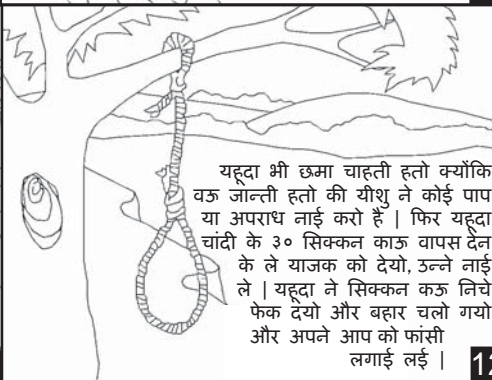 यहूदा भी छमा चाहती हतो क्योंकि
वऊ जान्ती हतो की यीशु ने कोई पाप
या अपराध नाई करो है | फिर यहूदा
चांदी के ३० सिक्कन काऊ वापस देन
के ले याजक को देयो, उन्ने नाई
ले | यहूदा ने सिक्कन कऊ निचे
फेक दयो और बहार चलो गयो
और अपने आप को फांसी
लगाई लई |